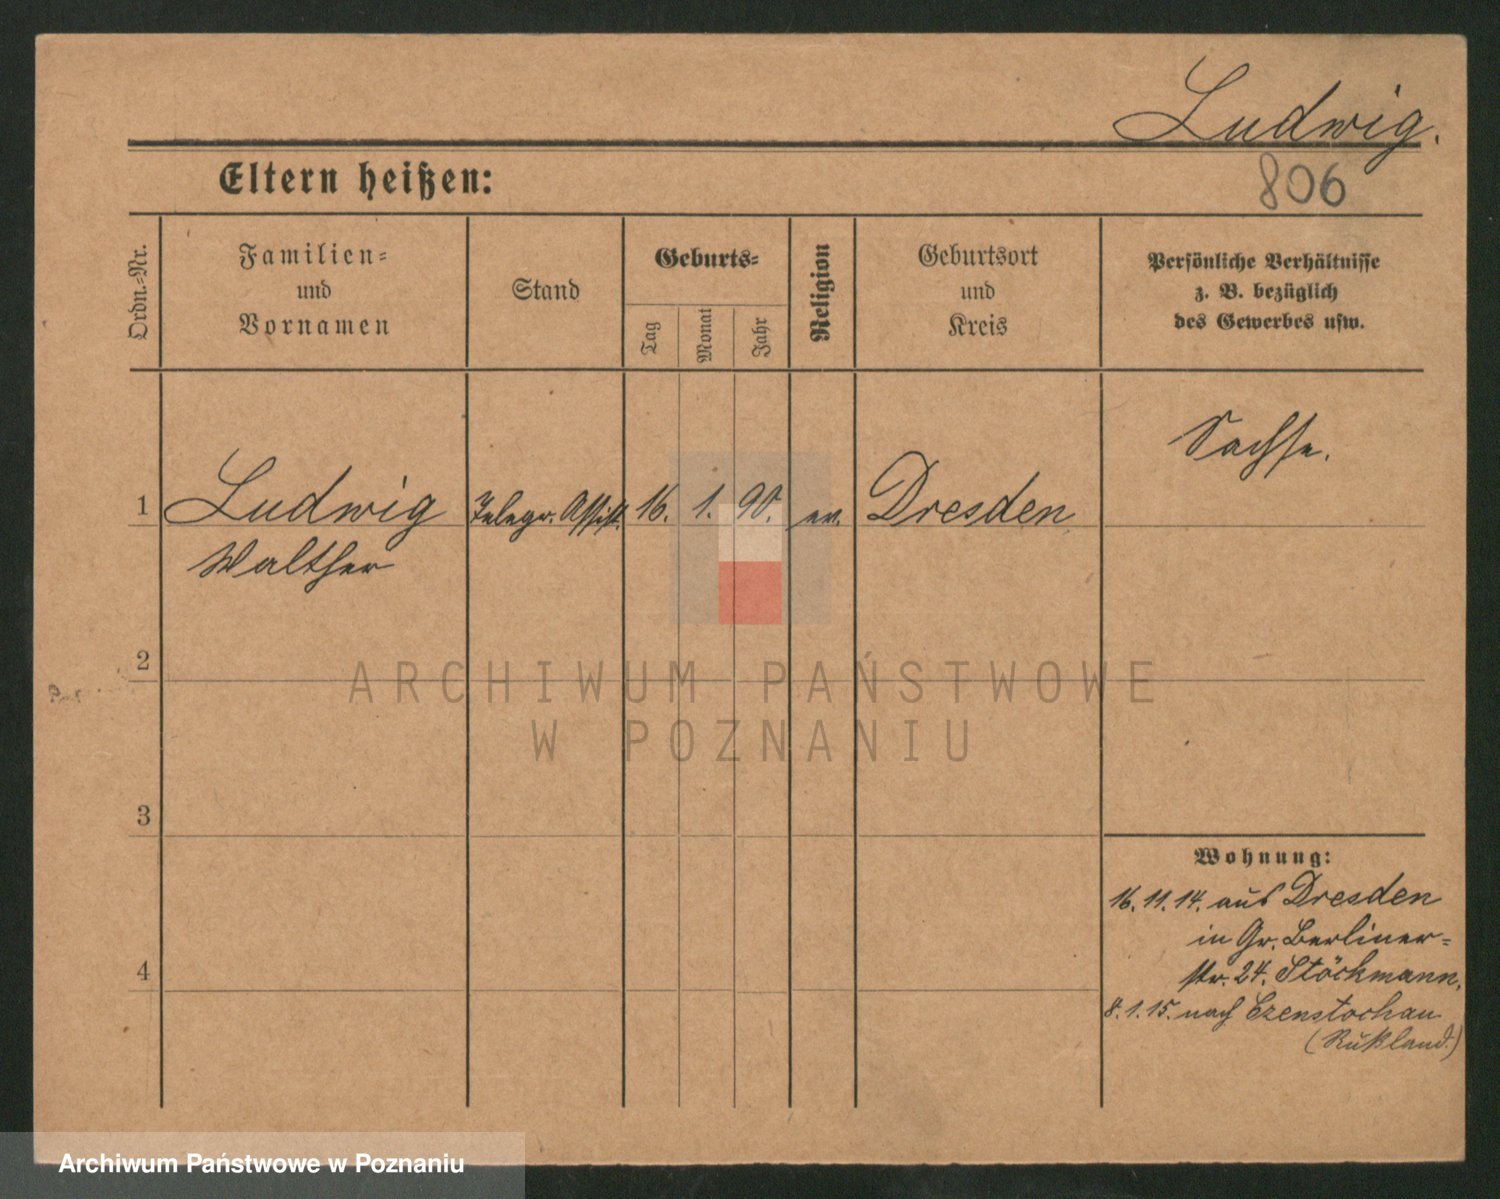 Ludwig.
806
Eltern heißen:
Ordn.-Nr.
Familien-
und
Vornamen
Stand
Geburts-
Tag
Monat
Jahr
Religion
Geburtsort
und
Kreis
Persönliche Verhältnisse
z. B. bezüglich
des Gewerbes usw.
Sachse.
1 Ludwig Telegr. Assist. 16. 1. 90. ev. Dresden
Walther
2
ARCHIWUM PAŃSTWOWE
W POZNANIU
3
Wohnung:
16.11.14. aus Dresden
in Gr. Berliner-
4
str. 24. Stöckmann.
8.1.15. nach Czenstochau
(Rußland.)
Archiwum Państwowe w Poznaniu